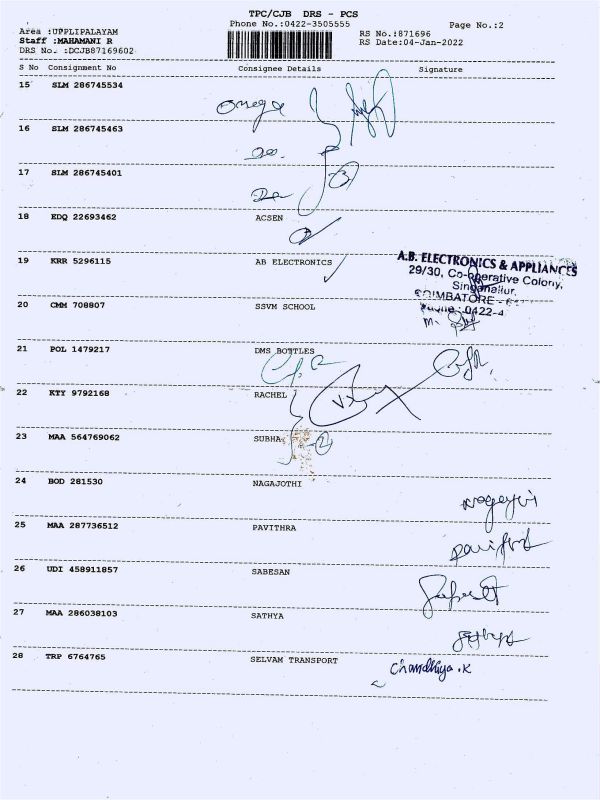 TPC/CJB DRS - PCS
Area :UPPLIPALAYAM Phone No.:0422-3505555 Page No.:2
Staff :MAHAMANI R RS No.:871696
DRS No. :DCJB87169602 RS Date:04-Jan-2022
S No Consignment No Consignee Details Signature
15 SLM 286745534
omega
16 SLM 286745463
Do.
17 SLM 286745401
3
Do
18 EDQ 22693462 ACSEN
19 KRR 5296115 AB ELECTRONICS
A.B. ELECTRONICS & APPLIANCES
29/30, Co-operative Colony,
Singanallur,
COIMBATORE -
20 CMM 708807 SSVM SCHOOL
Phone : 0422-4
M.
21 POL 1479217 DMS BOTTLES
22 KTY 9792168 RACHEL
23 MAA 564769062 SUBHA 2
24 BOD 281530 NAGAJOTHI
25 MAA 287736512 PAVITHRA
26 UDI 458911857 SABESAN
27 MAA 286038103 SATHYA
28 TRP 6764765 SELVAM TRANSPORT
Chandhiya.K